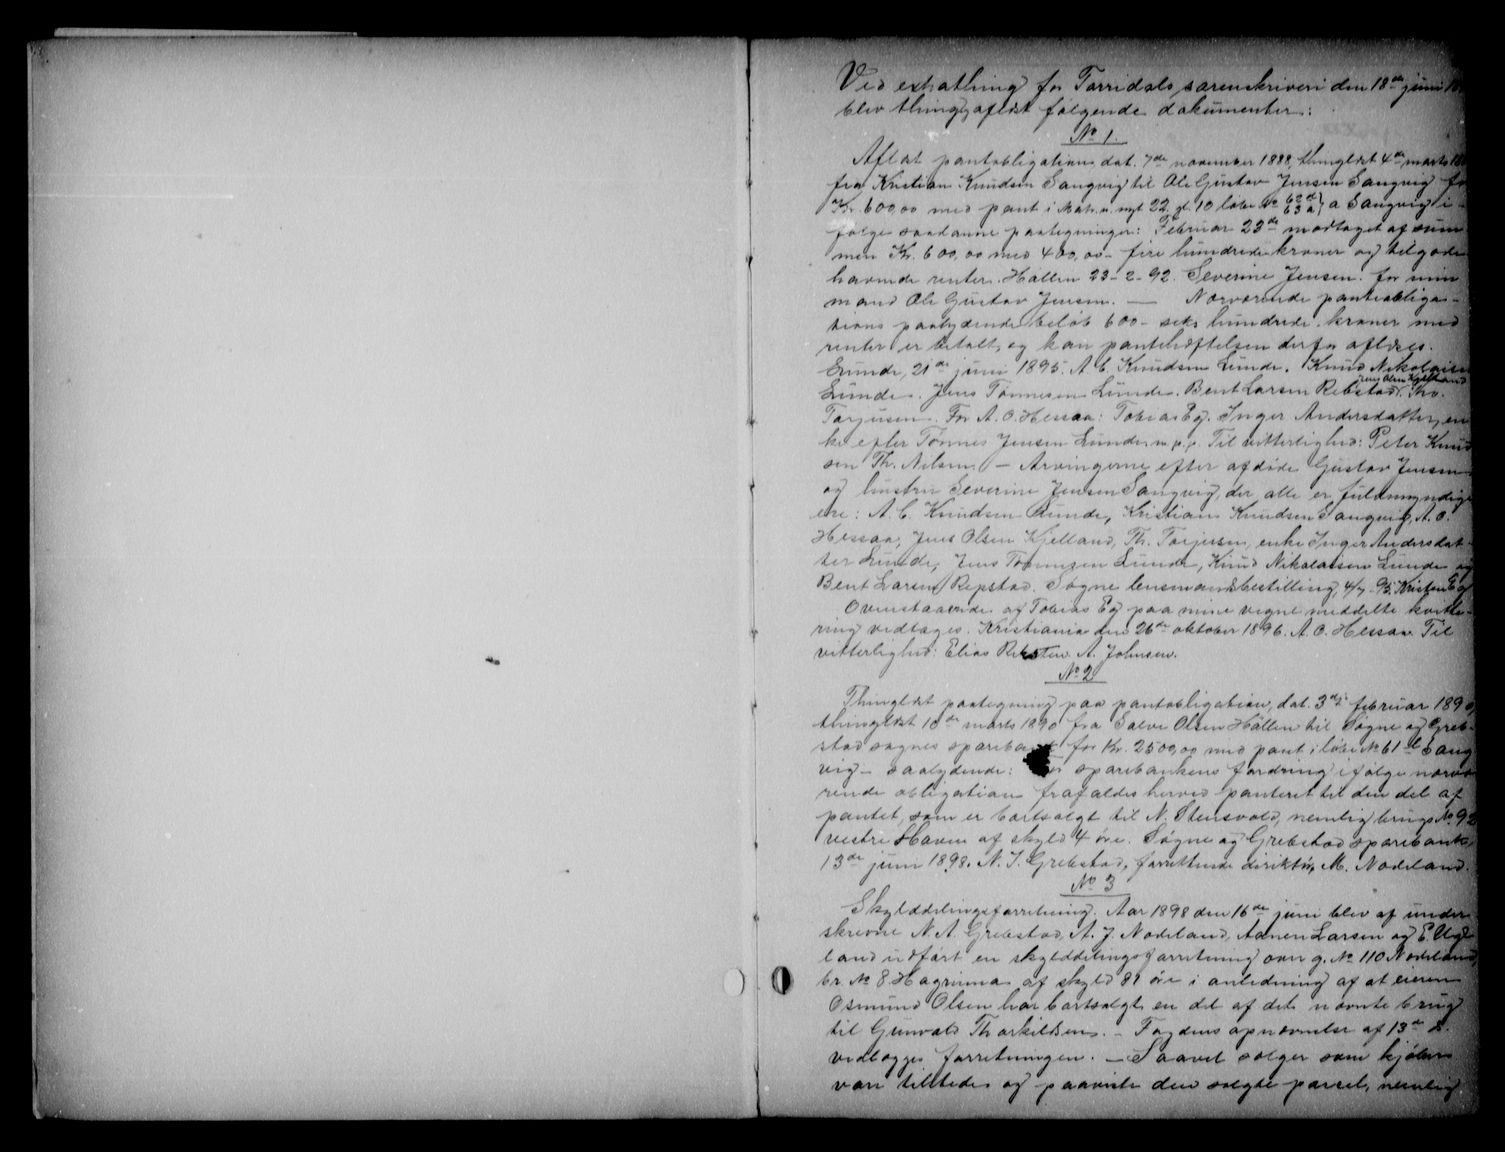 Ved extrathing for Torridals sorenskriveri den 18de juni
blev thinglæst følgende dokumenter:
No 1.
Aflæst pantobligation dat. 7de november 1888, thinglæst 4de marts
fra Kristian Knudsen Sangvig til Ole Gustav Jensen Sangvig for
Kr. 600,00 med pant i Matr. n. nyt 22, gl. 10 løbe No 62 d, 63 a } a Sangvig i-
følge saadanne paategninger: Februar 23de modtaget af sum-
men Kr. 600,00 med 400,00 - fire hundrede kroner og tilgode-
havende renter. Hallen 23-2-92. Severine Jensen. for min
mand Ole Gustav Jensen. — Nærværende pantobliga-
tions paalydende beløb 600 - seks hundrede kroner med
renter er betalt, og kan panteheftelsen derfor aflæses.
Lunde, 21de juni 1895. A. C. Knudsen Lunde. Knud Nikolaisen
Lunde. Jens Tønnesen Lunde. Bent Larsen Repstad. Jens Olsen Kjelland Thv.
Torjusen. For A. O. Hessaa: Tobias Eg. Inger Andersdatter, en-
ke efter Tønnes Jensen Lunde m. p. p. Til vitterlighed: Peter Knud-
sen Th. Nilsen. — Arvingerne efter afdøde Gustav Jensen
og hustru Severine Jensen Sangvig, der alle er fuldmyndige
ere: A. C. Knudsen Lunde, Kristian Knudsen Sangvig, A. O.
Hessaa, Jens Olsen Kjelland, Th. Torjusen, enke Inger Andersdat-
ter Lunde, Jens Tønnesen Lunde, Knud Nikolaisen Lunde og
Bent Larsen Repstad. Søgne lensmandsbestilling, 4/7-95. Kristen Eg
Ovenstaaende af Tobias Eg paa mine vegne meddelte kvitte-
ring vedtages. Kristiania den 26de oktober 1896. A. O. Hessaa. Til
vitterlighed: Elias Repsten. A. Johnsen.
No 2
Thinglæst paategning paa pantobligation, dat. 3die februar 1890,
thinglæst 10de marts 1890 fra Salve Olsen Hallen til Søgne og Greb-
stad sognes spareba for Kr. 2500,00 med pant i løbe No 61 Sang-
vig - saalydende: For sparebankens fordring ifølge nærvæ-
rende obligation frafaldes herved panteret til den del af
pantet, som er bortsolgt til N. Stensvold, nemlig brugs No 92
vestre Haven af skyld 4 øre. Søgne og Grebstad sparebank,
13de juni 1898. N. J. Grebstad, forrettende direktør, M. Nodeland.
No 3
Skylddelingsforretning. Aar 1898 den 16de juni blev af under-
skrevne N. A. Grebstad, A. J. Nodeland, Aanen Larsen og E. Ug-
land udført en skylddelingsforretning over g. No 110 Nodeland,
br. No 8 Hagrinna af skyld 81 øre i anledning af at eieren
Osmund Olsen har bortsolgt en del af det nævnte brug
til Gunvald Thorkildsen. - Fogdens opnævnelse af 13de d.
vedlægges forretningen. — Saavel sælger som kjøber
var tilstede og paaviste den solgte parcel, nemlig